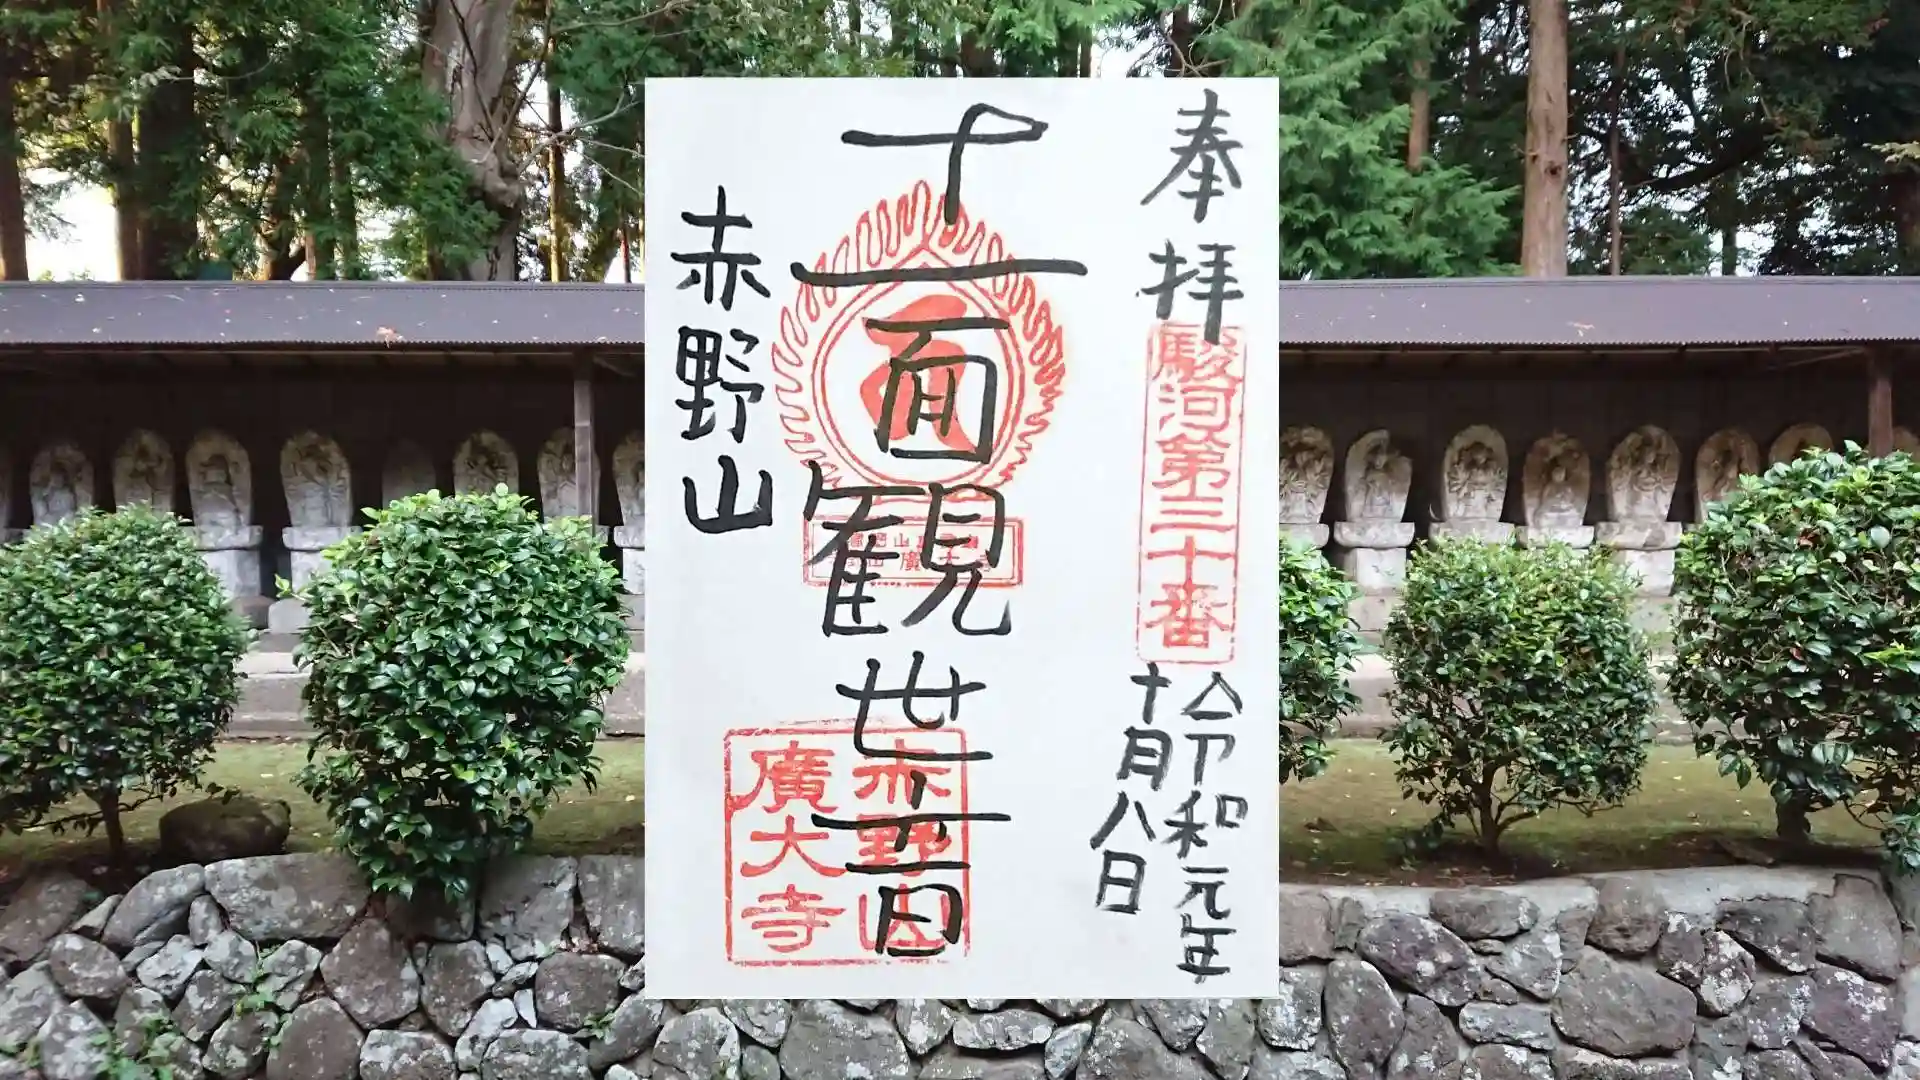 奉拝
駿河第三十番
令和元年
十月八日
十一面観世音
赤野山
廣大寺
赤野山